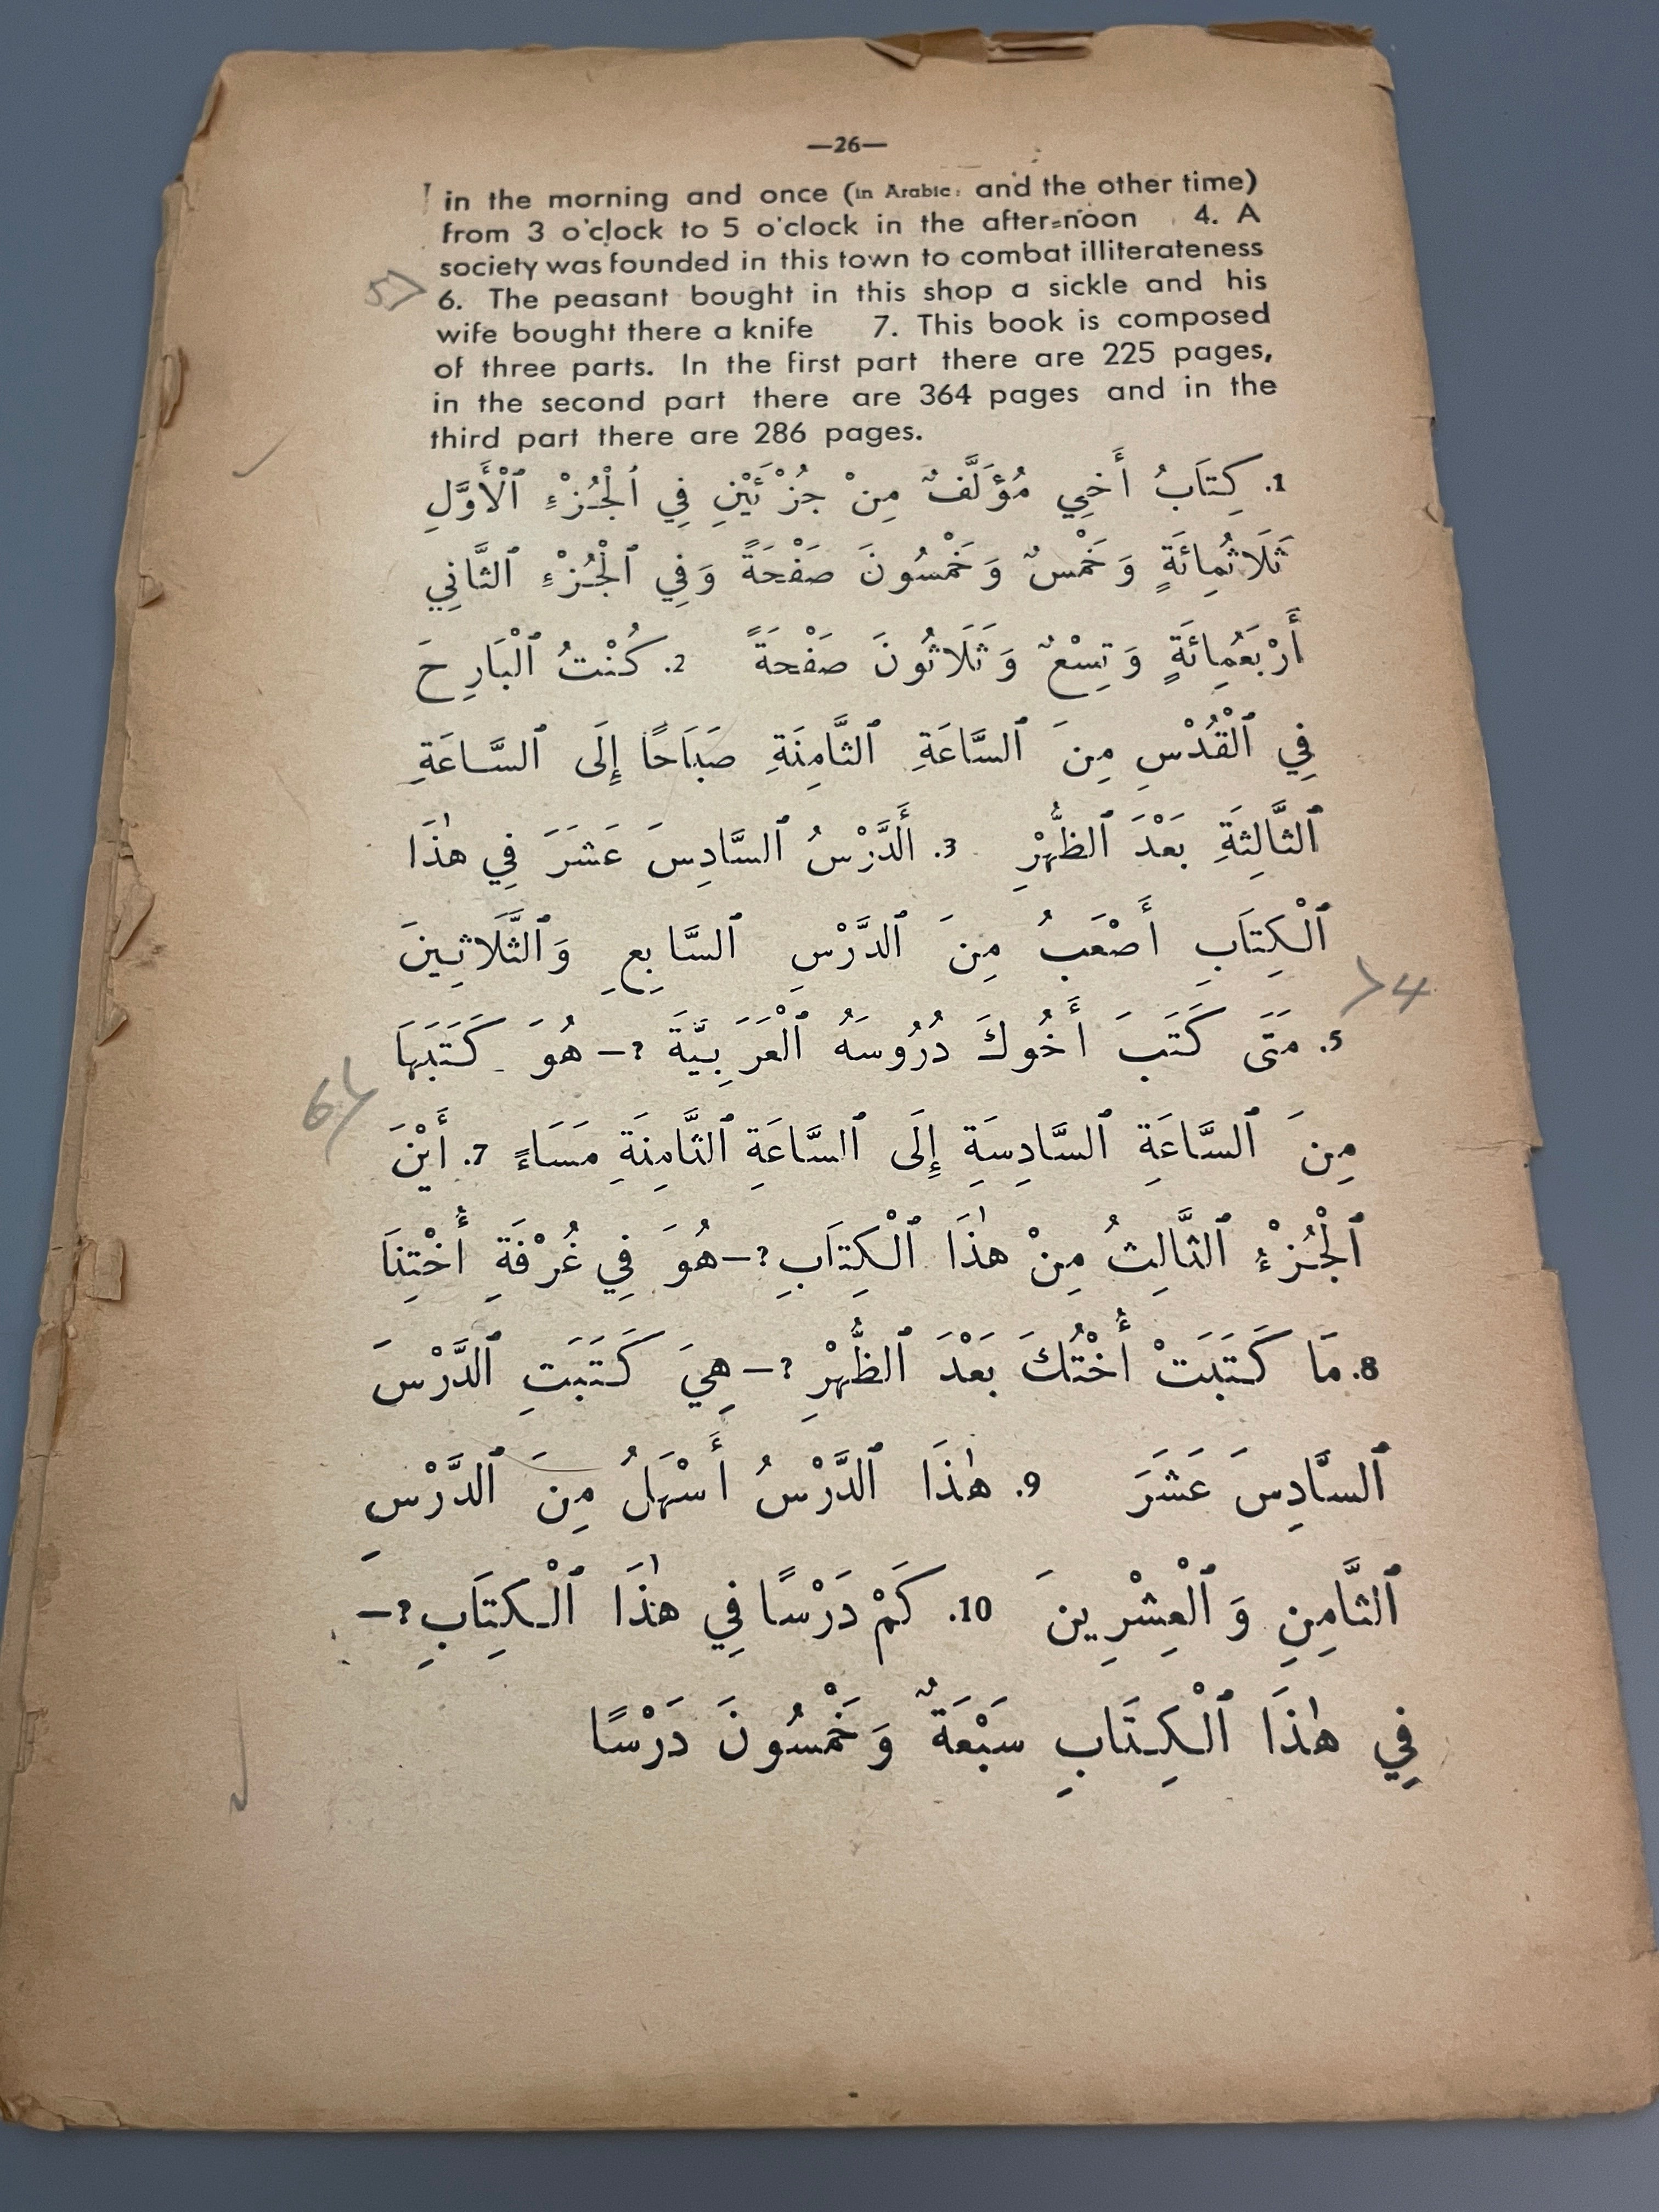 —26—
in the morning and once (in Arabic: and the other time)
from 3 o'clock to 5 o'clock in the after-noon 4. A
society was founded in this town to combat illiterateness
5> 6. The peasant bought in this shop a sickle and his
wife bought there a knife 7. This book is composed
of three parts. In the first part there are 225 pages,
in the second part there are 364 pages and in the
third part there are 286 pages.
1. كِتَابُ أَخِي مُؤَلَّفٌ مِنْ جُزْئَيْنِ فِي ٱلْجُزْءِ ٱلْأَوَّلِ
ثَلَاثُمِائَةٍ وَخَمْسٌ وَخَمْسُونَ صَفْحَةً وَفِي ٱلْجُزْءِ ٱلثَّانِي
أَرْبَعُمِائَةٍ وَتِسْعٌ وَثَلَاثُونَ صَفْحَةً 2. كُنْتُ ٱلْبَارِحَ
فِي ٱلْقُدْسِ مِنَ ٱلسَّاعَةِ ٱلثَّامِنَةِ صَبَاحًا إِلَى ٱلسَّاعَةِ
ٱلثَّالِثَةِ بَعْدَ ٱلظُّهْرِ 3. أَلدَّرْسُ ٱلسَّادِسَ عَشَرَ فِي هٰذَا
ٱلْكِتَابِ أَصْعَبُ مِنَ ٱلدَّرْسِ ٱلسَّابِعِ وَٱلثَّلَاثِينَ >4
5. مَتَى كَتَبَ أَخُوكَ دُرُوسَهُ ٱلْعَرَبِيَّةَ ?— هُوَ كَتَبَهَا
6> مِنَ ٱلسَّاعَةِ ٱلسَّادِسَةِ إِلَى ٱلسَّاعَةِ ٱلثَّامِنَةِ مَسَاءً 7. أَيْنَ
ٱلْجُزْءُ ٱلثَّالِثُ مِنْ هٰذَا ٱلْكِتَابِ ?— هُوَ فِي غُرْفَةِ أُخْتِنَا
8. مَا كَتَبَتْ أُخْتُكَ بَعْدَ ٱلظُّهْرِ ?— هِيَ كَتَبَتِ ٱلدَّرْسَ
ٱلسَّادِسَ عَشَرَ 9. هٰذَا ٱلدَّرْسُ أَسْهَلُ مِنَ ٱلدَّرْسِ
ٱلثَّامِنِ وَٱلْعِشْرِينَ 10. كَمْ دَرْسًا فِي هٰذَا ٱلْكِتَابِ ?—
فِي هٰذَا ٱلْكِتَابِ سَبْعَةٌ وَخَمْسُونَ دَرْسًا